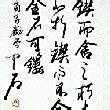 鍥而舍之朽木
不折鍥而不舍
金石可鏤
荀子勸學 中石